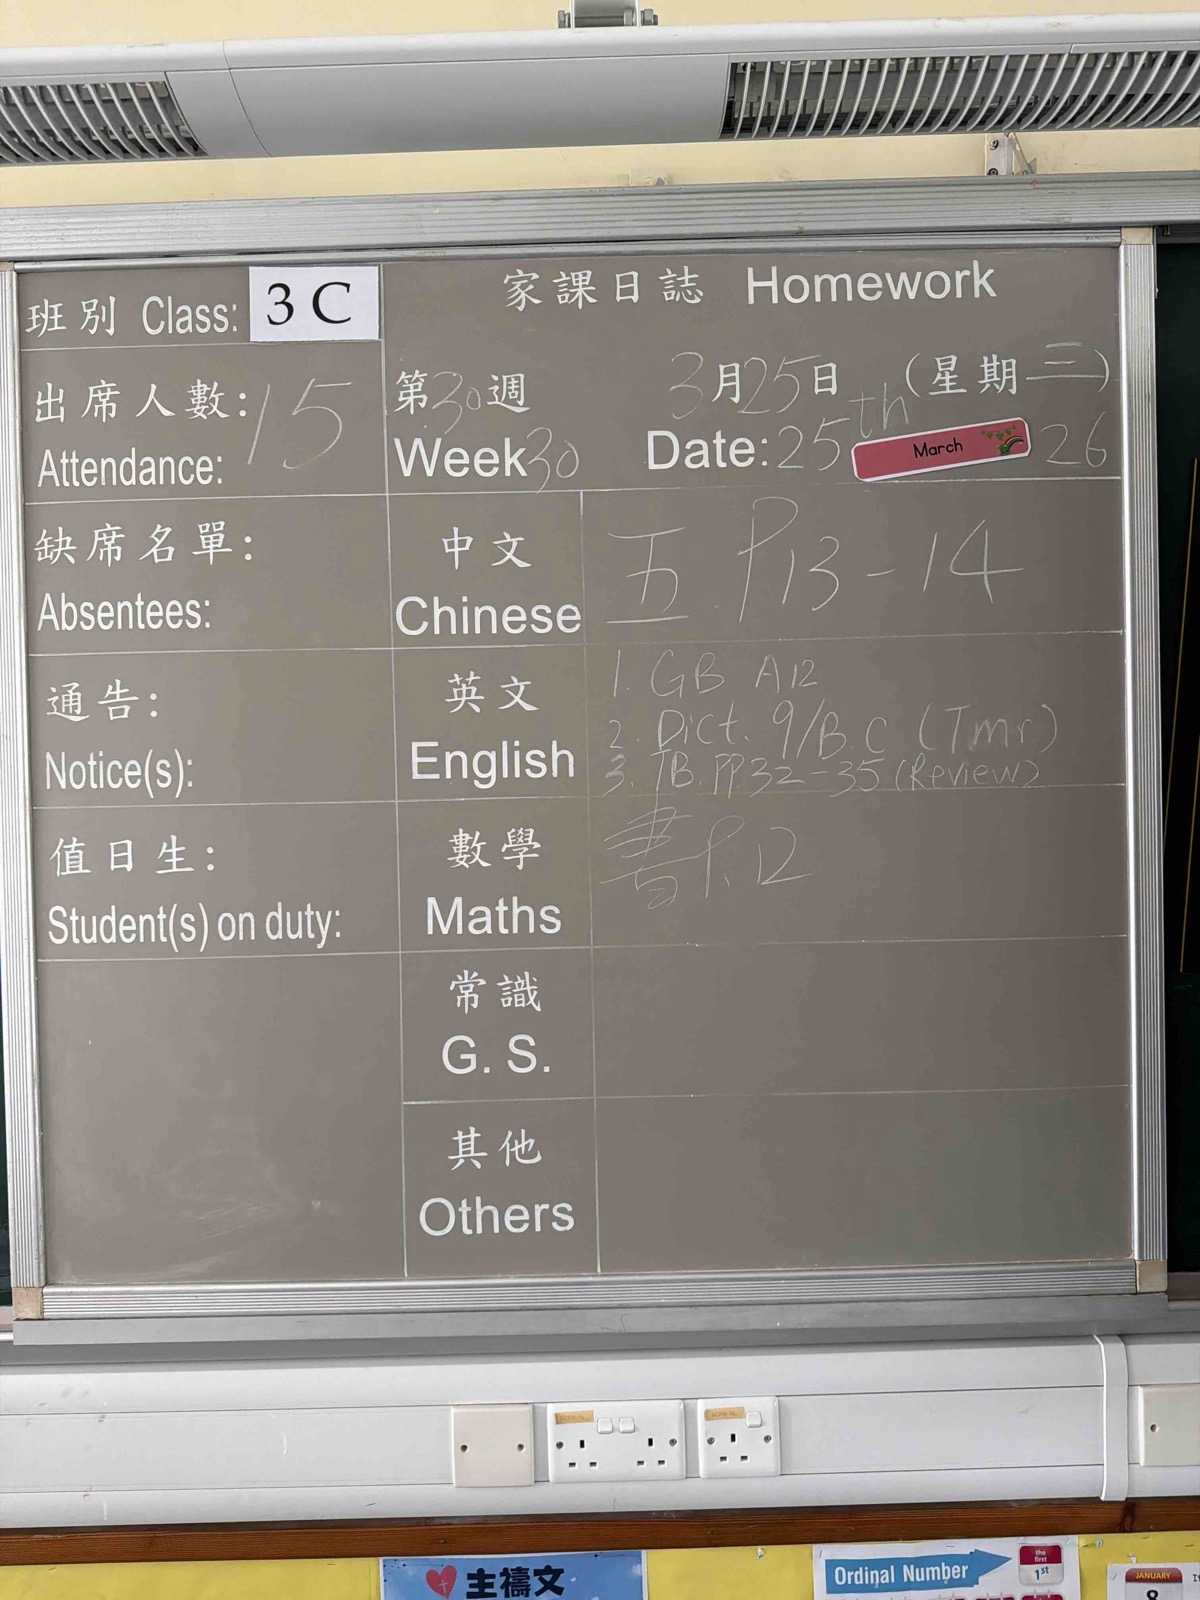 班別 Class: 3 C
家課日誌 Homework
出席人數: 15
Attendance:
第30週 3月25日 (星期三)
Week30 Date: 25th March 26
缺席名單:
Absentees:
中文
Chinese
五 P13-14
通告:
Notice(s):
英文
English
1. GB A12
2. Dict. 9/B.C (Tmr)
3. TB. PP.32-35 (Review)
值日生:
Student(s) on duty:
數學
Maths
書P.12
常識
G. S.
其他
Others
主禱文
Ordinal Number
the first
1st
JANUARY
8